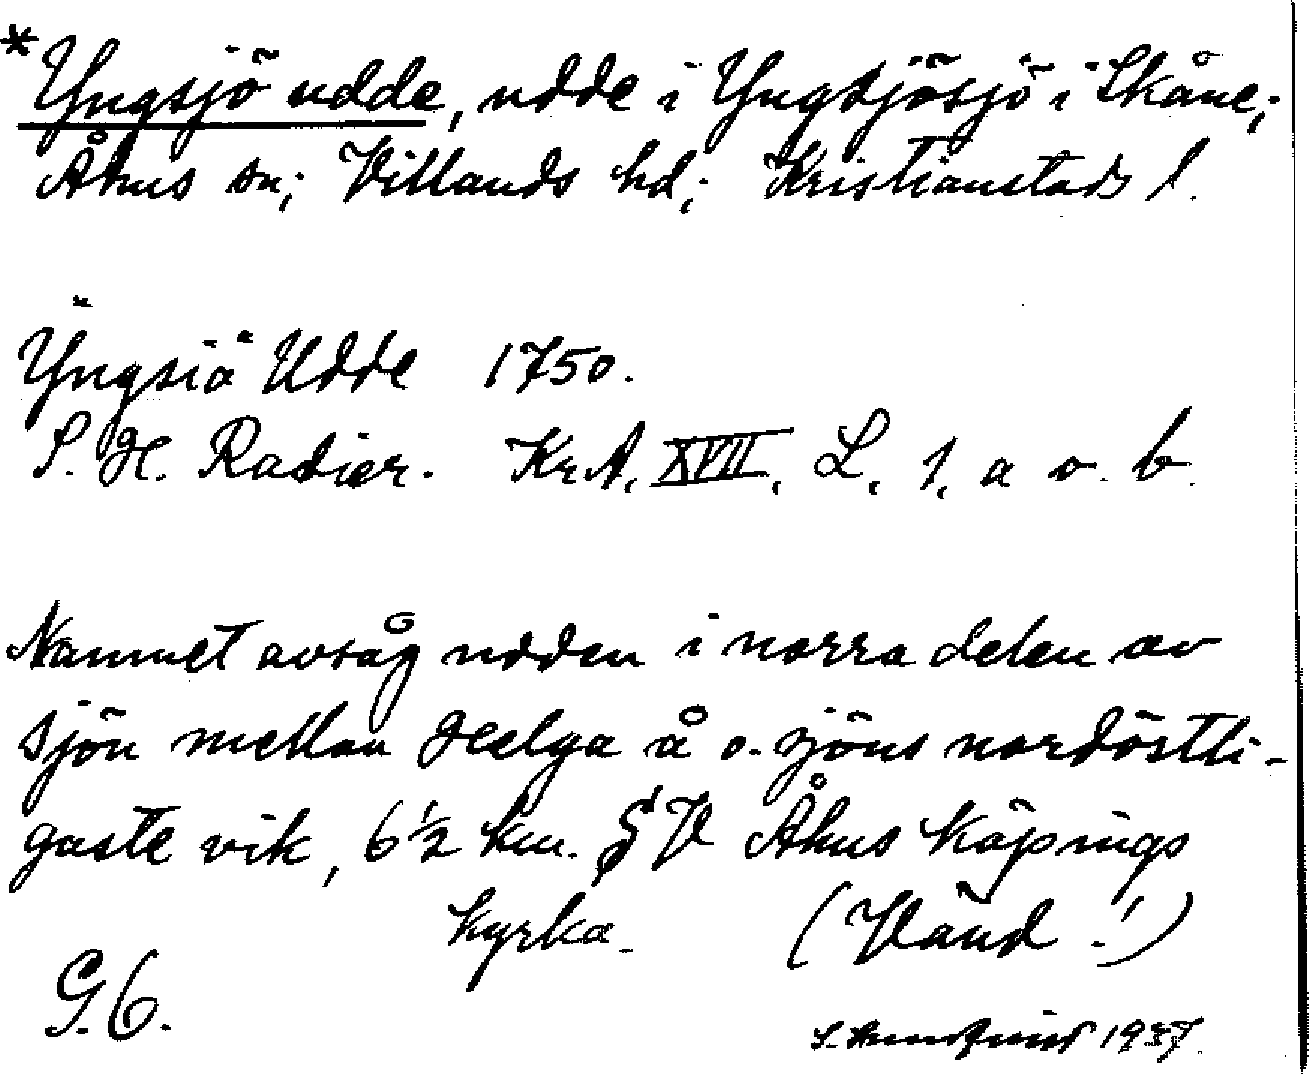 *Yngsjö udde, udde i Yngsjösjö i Skåne;
Åhus sn; Villands hd; Kristianstads l.
Yngsiö Udde 1750.
S. H. Radier. Kr.A. XVII. L. 1. a o. b.
Namnet avsåg udden i norra delen av
sjön mellan Helge å o. sjöns nordöstli-
gaste vik, 6½ km. SV Åhus köpings
kyrka.
(Vänd!)
G. 6.
1937.